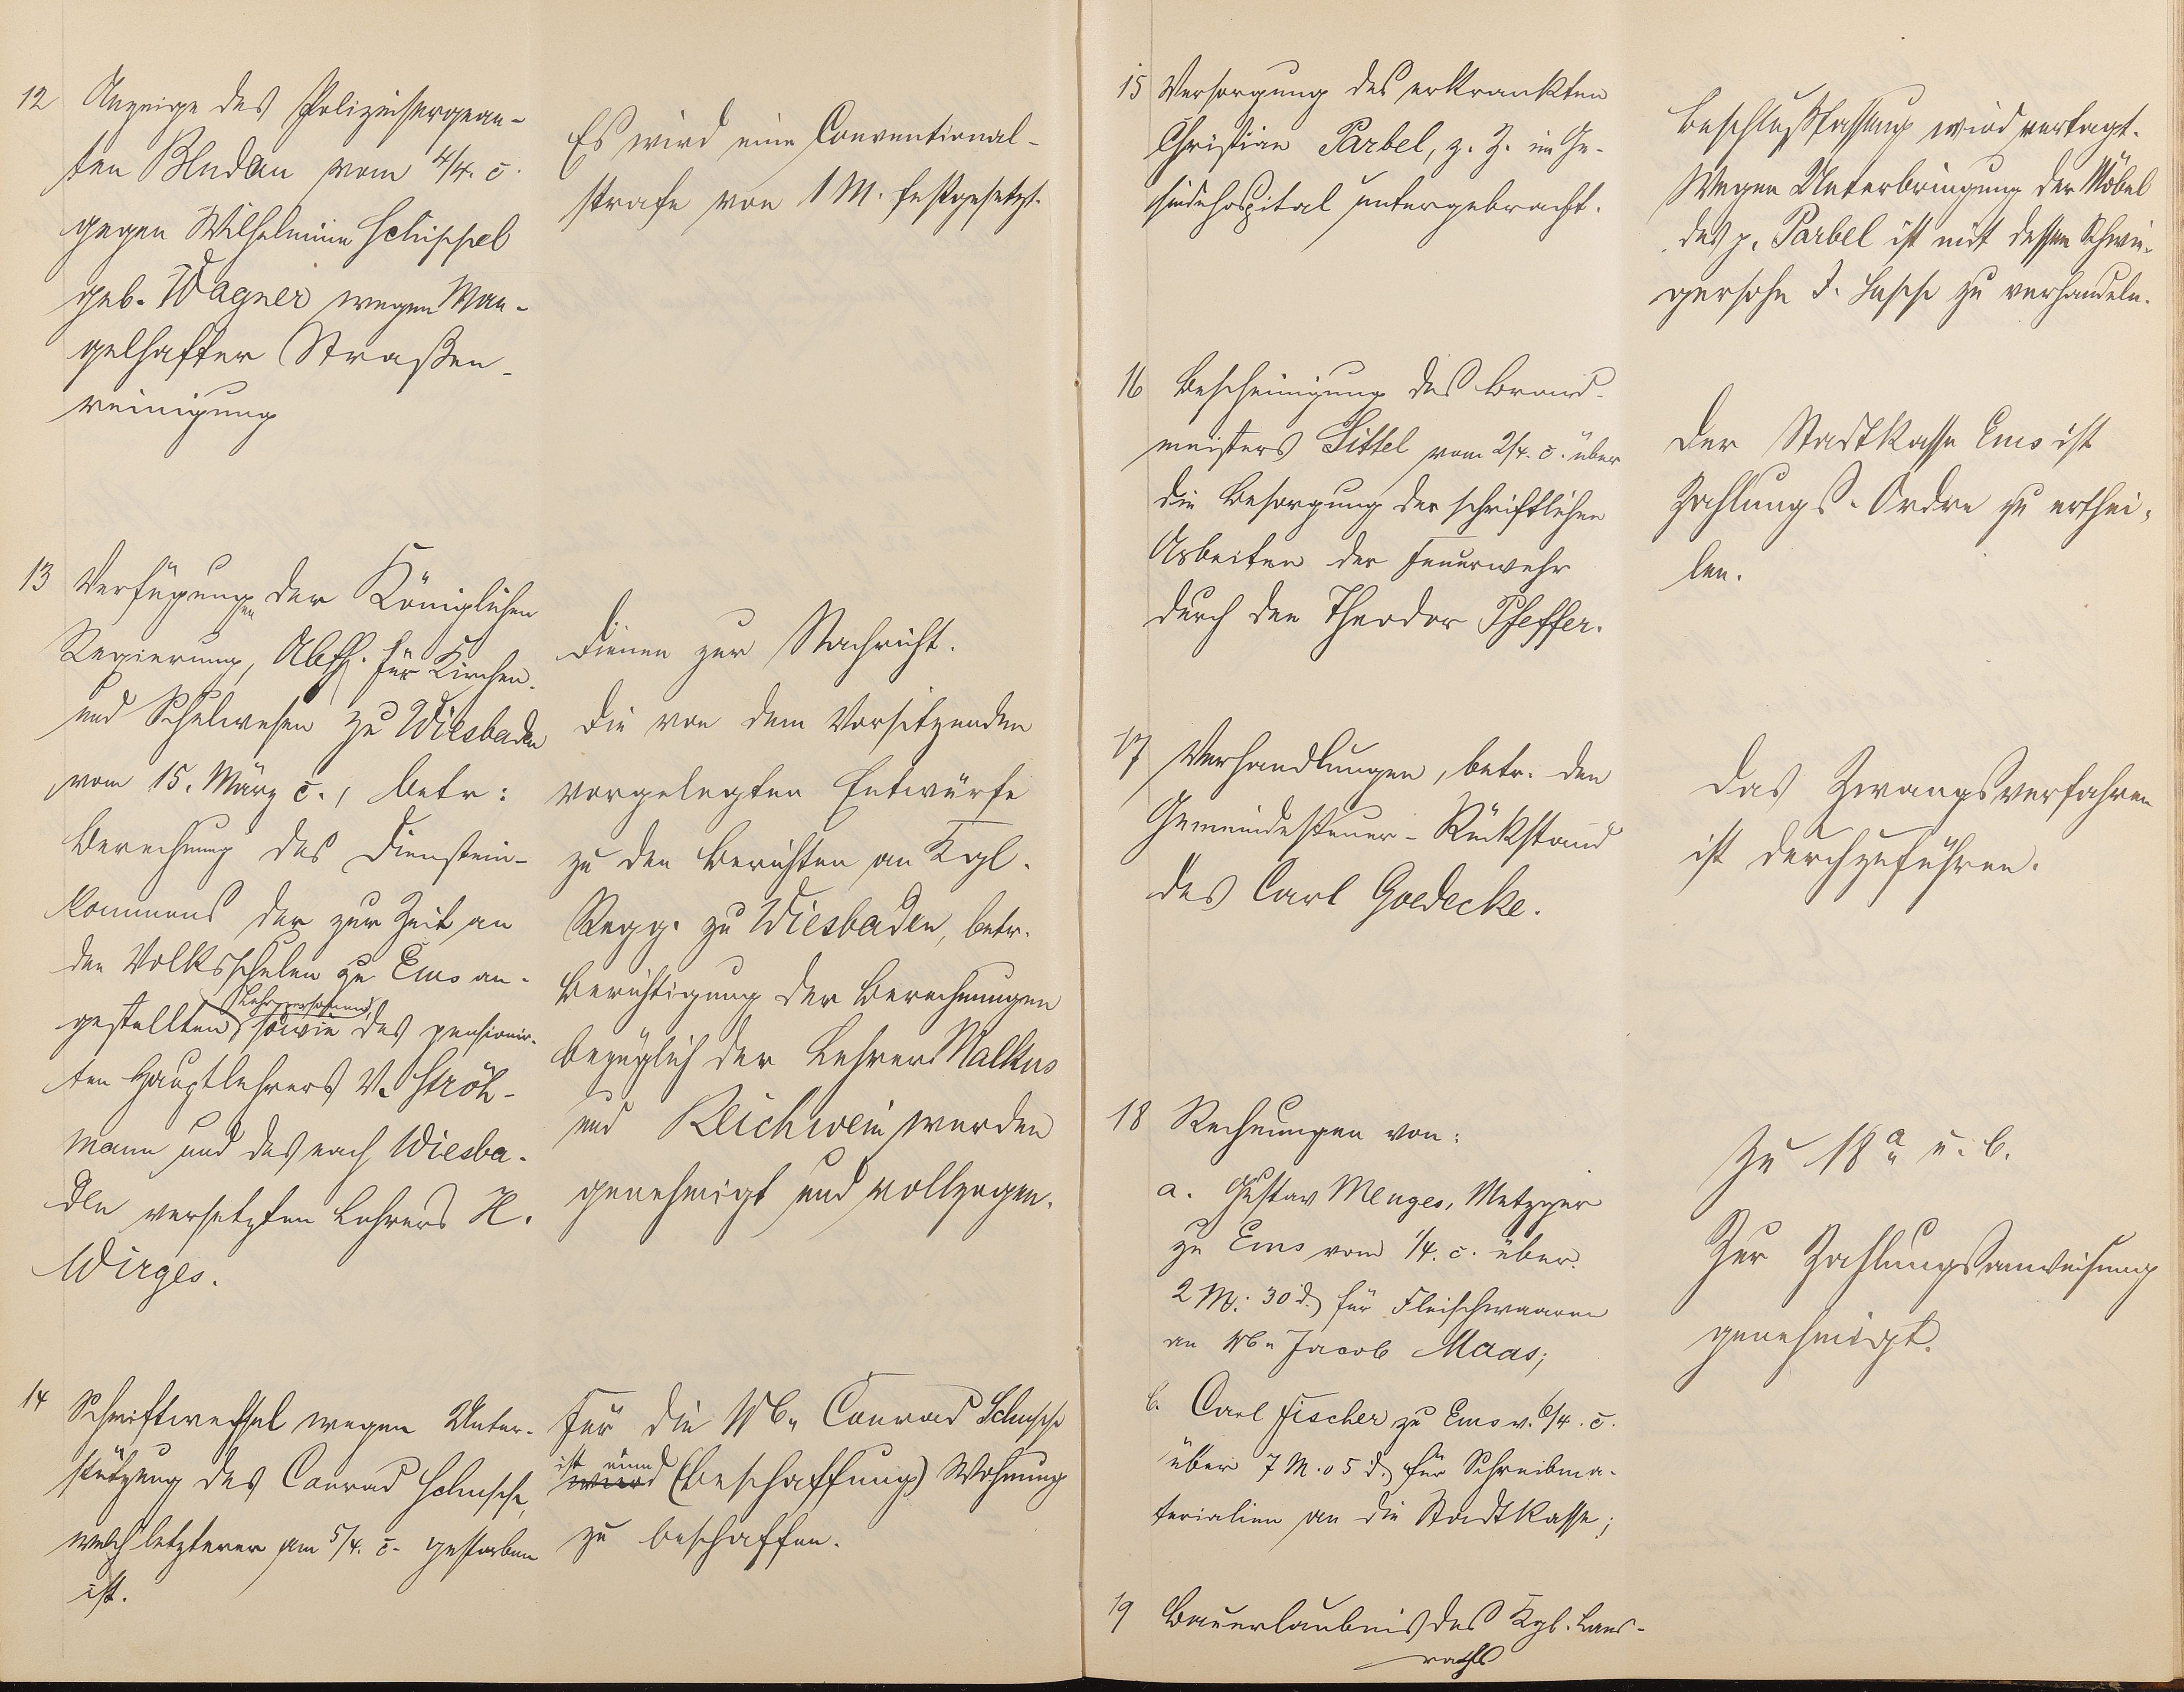 12 Anzeige des Polizeisergean-
ten Bludau vom 4/4. c.
gegen Wilhelmine Schippel
geb. Wagner wegen Man-
gelhafter Straßen-
reinigung
Es wird eine Conventional-
strafe von 1 M. festgesetzt.
13 Verfügungen der Königlichen
Regierung, Abth. für Kirchen-
und Schulwesen zu Wiesbaden
vom 15. März c., betr:
Berechnung des Dienstein-
kommens der zur Zeit an
den Volksschulen zu Ems an-
gestellten Lehrpersonen, sowie des pensionir-
ten Hauptlehrers V. Ströh-
mann und des nach Wiesba-
den versetzten Lehrers H.
Wirges.
Dienen zur Nachricht.
Die von dem Vorsitzenden
vorgelegten Entwürfe
zu den Berichten an Kgl.
Regg. zu Wiesbaden, betr.
Berichtigung der Berechnungen
bezüglich der Lehrer Malkus
und Reichwein werden
genehmigt und vollzogen.
14 Schriftwechsel wegen Unter-
stützung des Conrad
welch letzterer am 5/4. c. gestorben
ist.
Für die Wb. Conrad
ist eine
wird (Beschaffung) Wohnung
zu beschaffen.
15 Versorgung des erkrankten
Christian Parbel, z. Z. im Ge-
sindehospital untergebracht.
Beschlußfassung wird vertagt.
Wegen Unterbringung der Möbel
des p. Parbel ist mit dessen Schwie-
gersohn J. zu verhandeln.
16 Bescheinigung des Brand-
meisters Sittel vom 2/4. c. über
die Besorgung der schriftlichen
Arbeiten der Feuerwehr
durch den Theodor Pfeffer.
Der Stadtkasse Ems ist
Zahlungs-Ordre zu erthei-
len.
17 Verhandlungen, betr. den
Gemeindesteuer-Rückstand
des Carl Goedecke.
Das Zwangsverfahren
ist durchzuführen.
18 Rechnungen von:
a. Gustav Menges, Metzger
zu Ems vom 1/4. c. über
2 M. 30 d. für Fleischwaaren
an Wb. Jacob Maas;
b. Carl Fischer zu Ems v. 6/4. c.
über 7 M. 05 d. für Schreibma-
terialien an die Stadtkasse;
Zu 18 a u. b.
Zur Zahlungsanweisung
genehmigt.
19 Bauerlaubniß des Kgl. Land-
raths